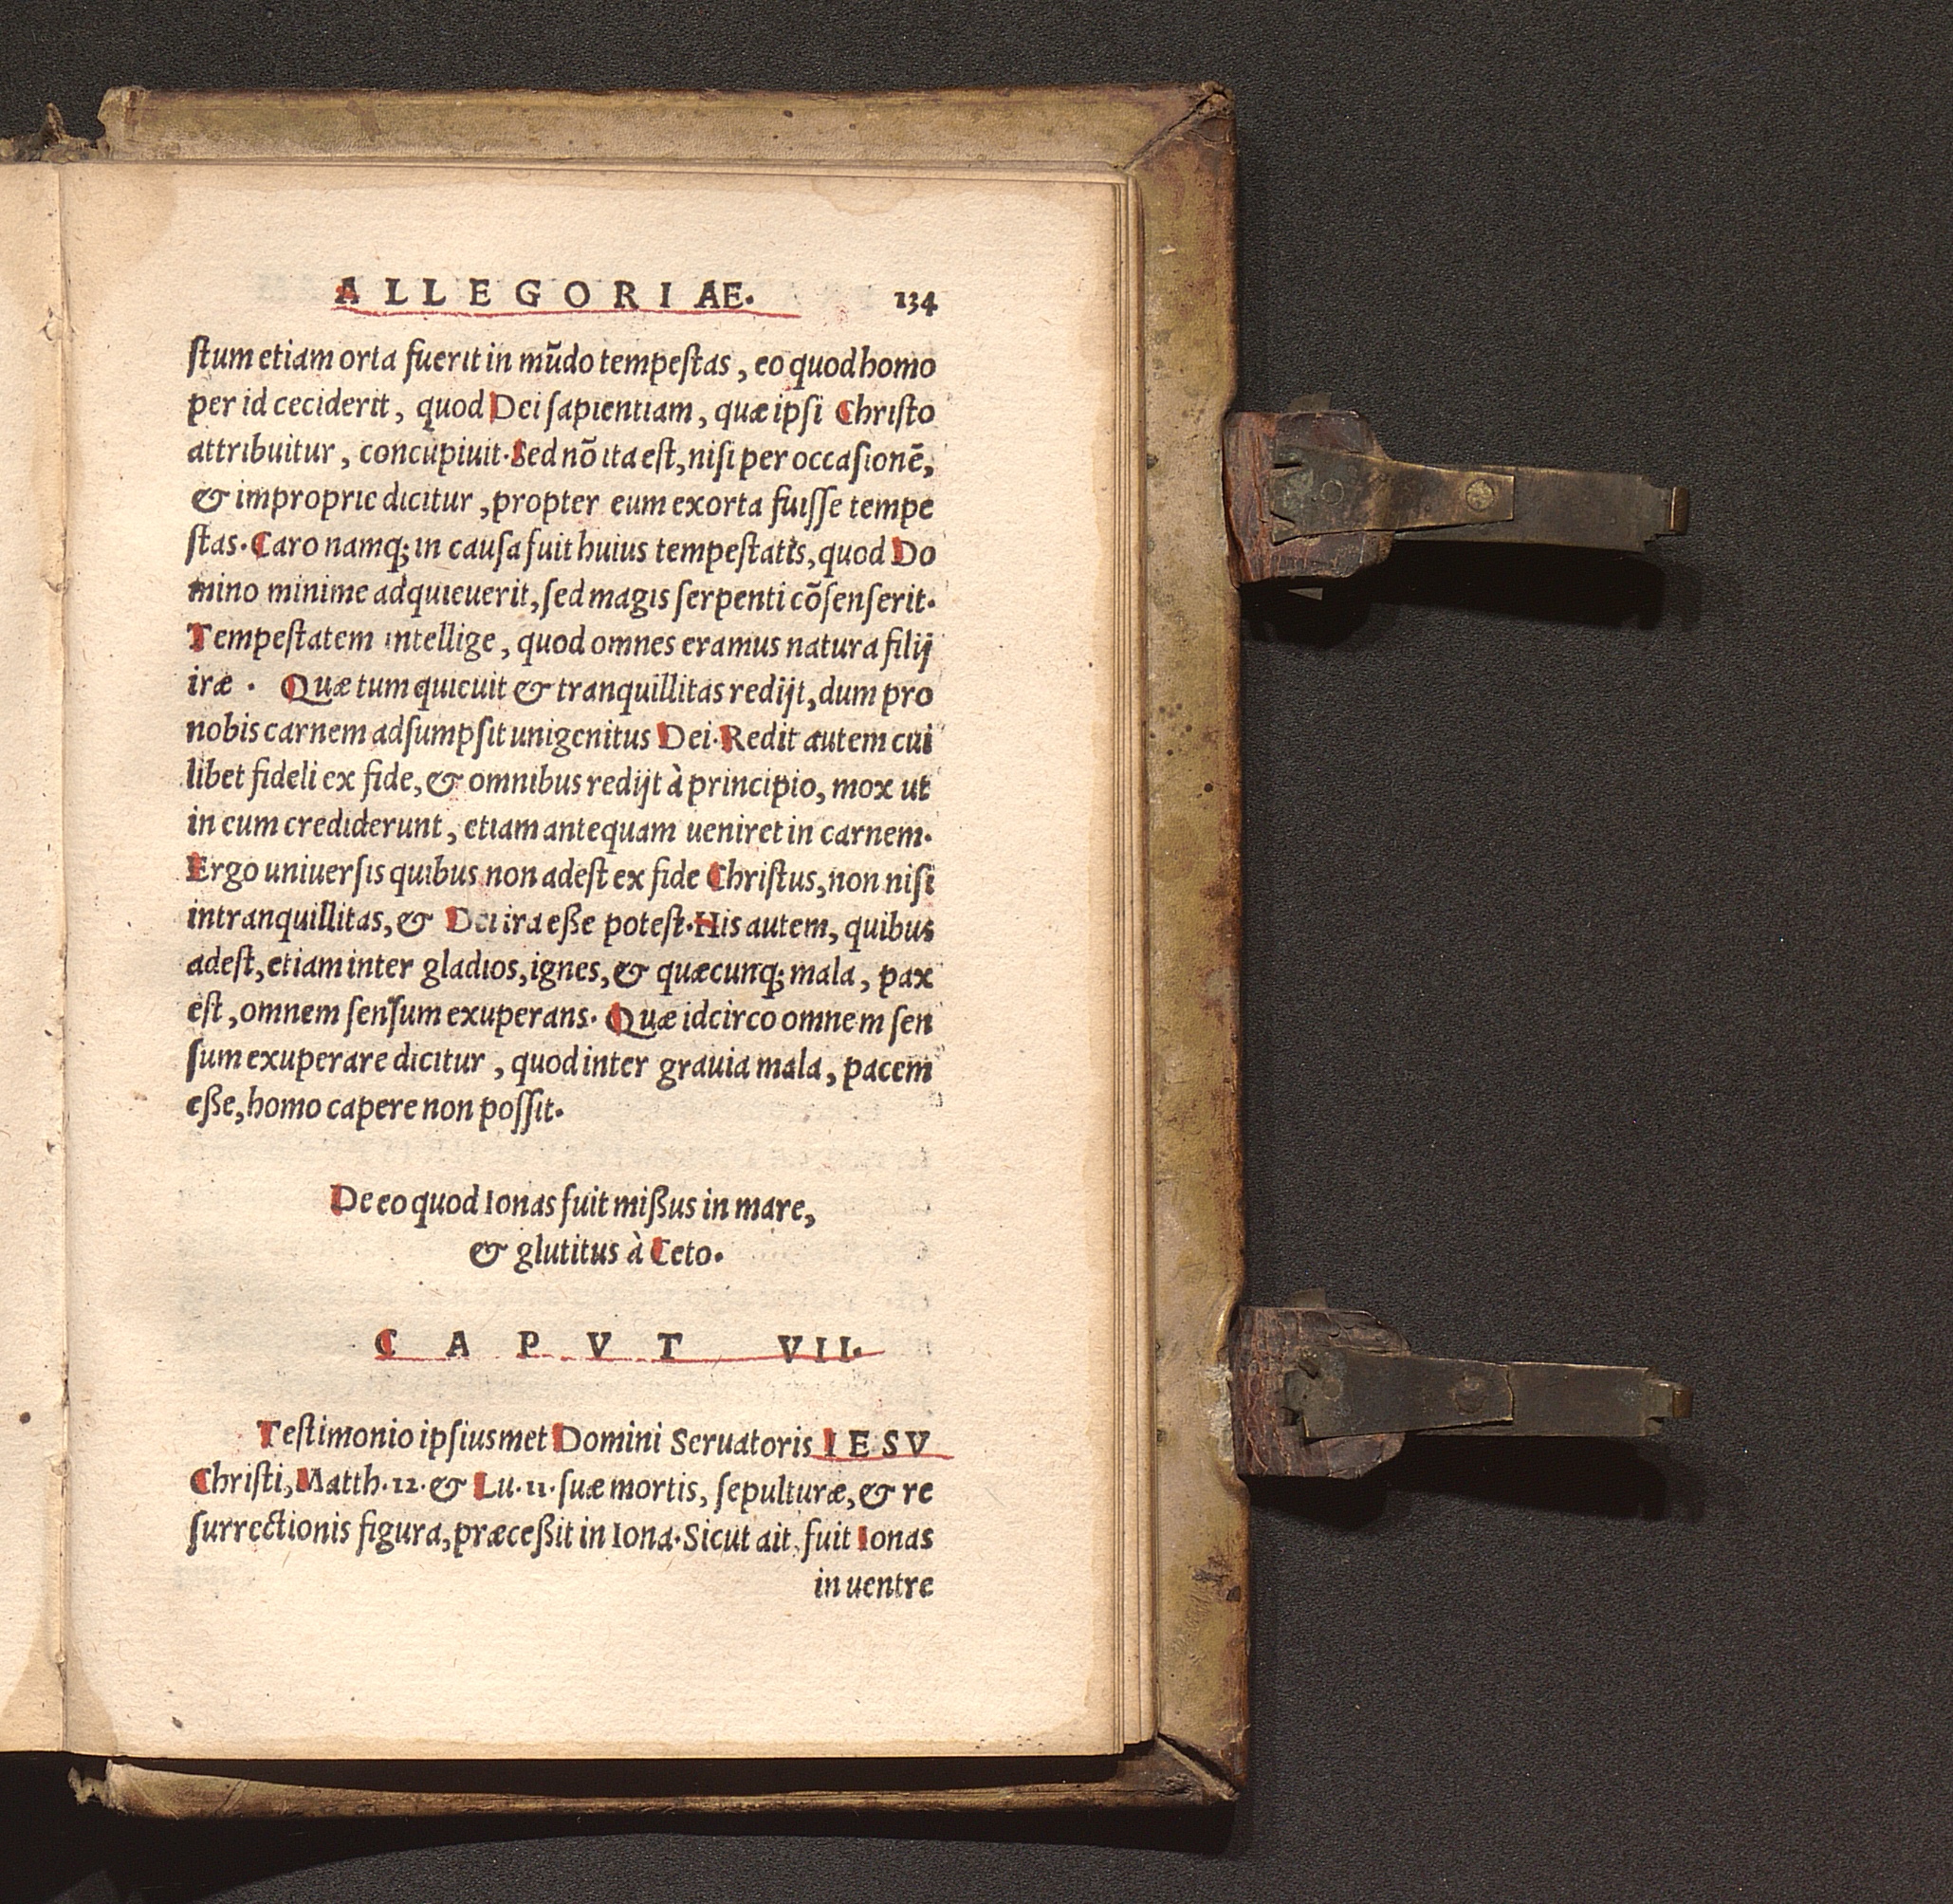 ALLEGORIAE. 134
ſtum etiam orta fuerit in mũdo tempeſtas, eo quod homo
per id ceciderit, quod Dei ſapientiam, quæ ipſi Chriſto
attribuitur, concupiuit. Sed nõ ita eſt, niſi per occaſionẽ,
& improprie dicitur, propter eum exorta fuiſſe tempe
ſtas. Caro namq; in cauſa fuit huius tempeſtatis, quod Do
mino minime adquieuerit, ſed magis ſerpenti cõſenſerit.
Tempeſtatem intellige, quod omnes eramus natura filij
iræ. Quæ tum quieuit & tranquillitas redijt, dum pro
nobis carnem adſumpſit unigenitus Dei. Redit autem cui
libet fideli ex fide, & omnibus redijt à principio, mox ut
in eum crediderunt, etiam antequam ueniret in carnem.
Ergo uniuerſis quibus non adeſt ex fide Chriſtus, non niſi
intranquillitas, & Dei ira eße poteſt. His autem, quibus
adeſt, etiam inter gladios, ignes, & quæcunq; mala, pax
eſt, omnem ſenſum exuperans. Quæ idcirco omnem ſen
ſum exuperare dicitur, quod inter grauia mala, pacem
eße, homo capere non poſſit.
De eo quod Ionas fuit mißus in mare,
& glutitus à Ceto.
CAPVT VII.
Teſtimonio ipſiusmet Domini Seruatoris IESV
Chriſti, Matth. 12. & Lu. 11. ſuæ mortis, ſepulturæ, & re
ſurrectionis figura, præceßit in Iona. Sicut ait, fuit Ionas
in uentre